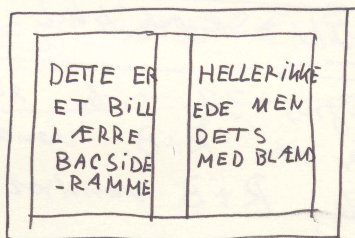 DETTE ER
ET BILL
LÆRRE
BAGSIDE
-RAMME
HELLER iKKE
EDE MEN
DETS
MED BLÆND